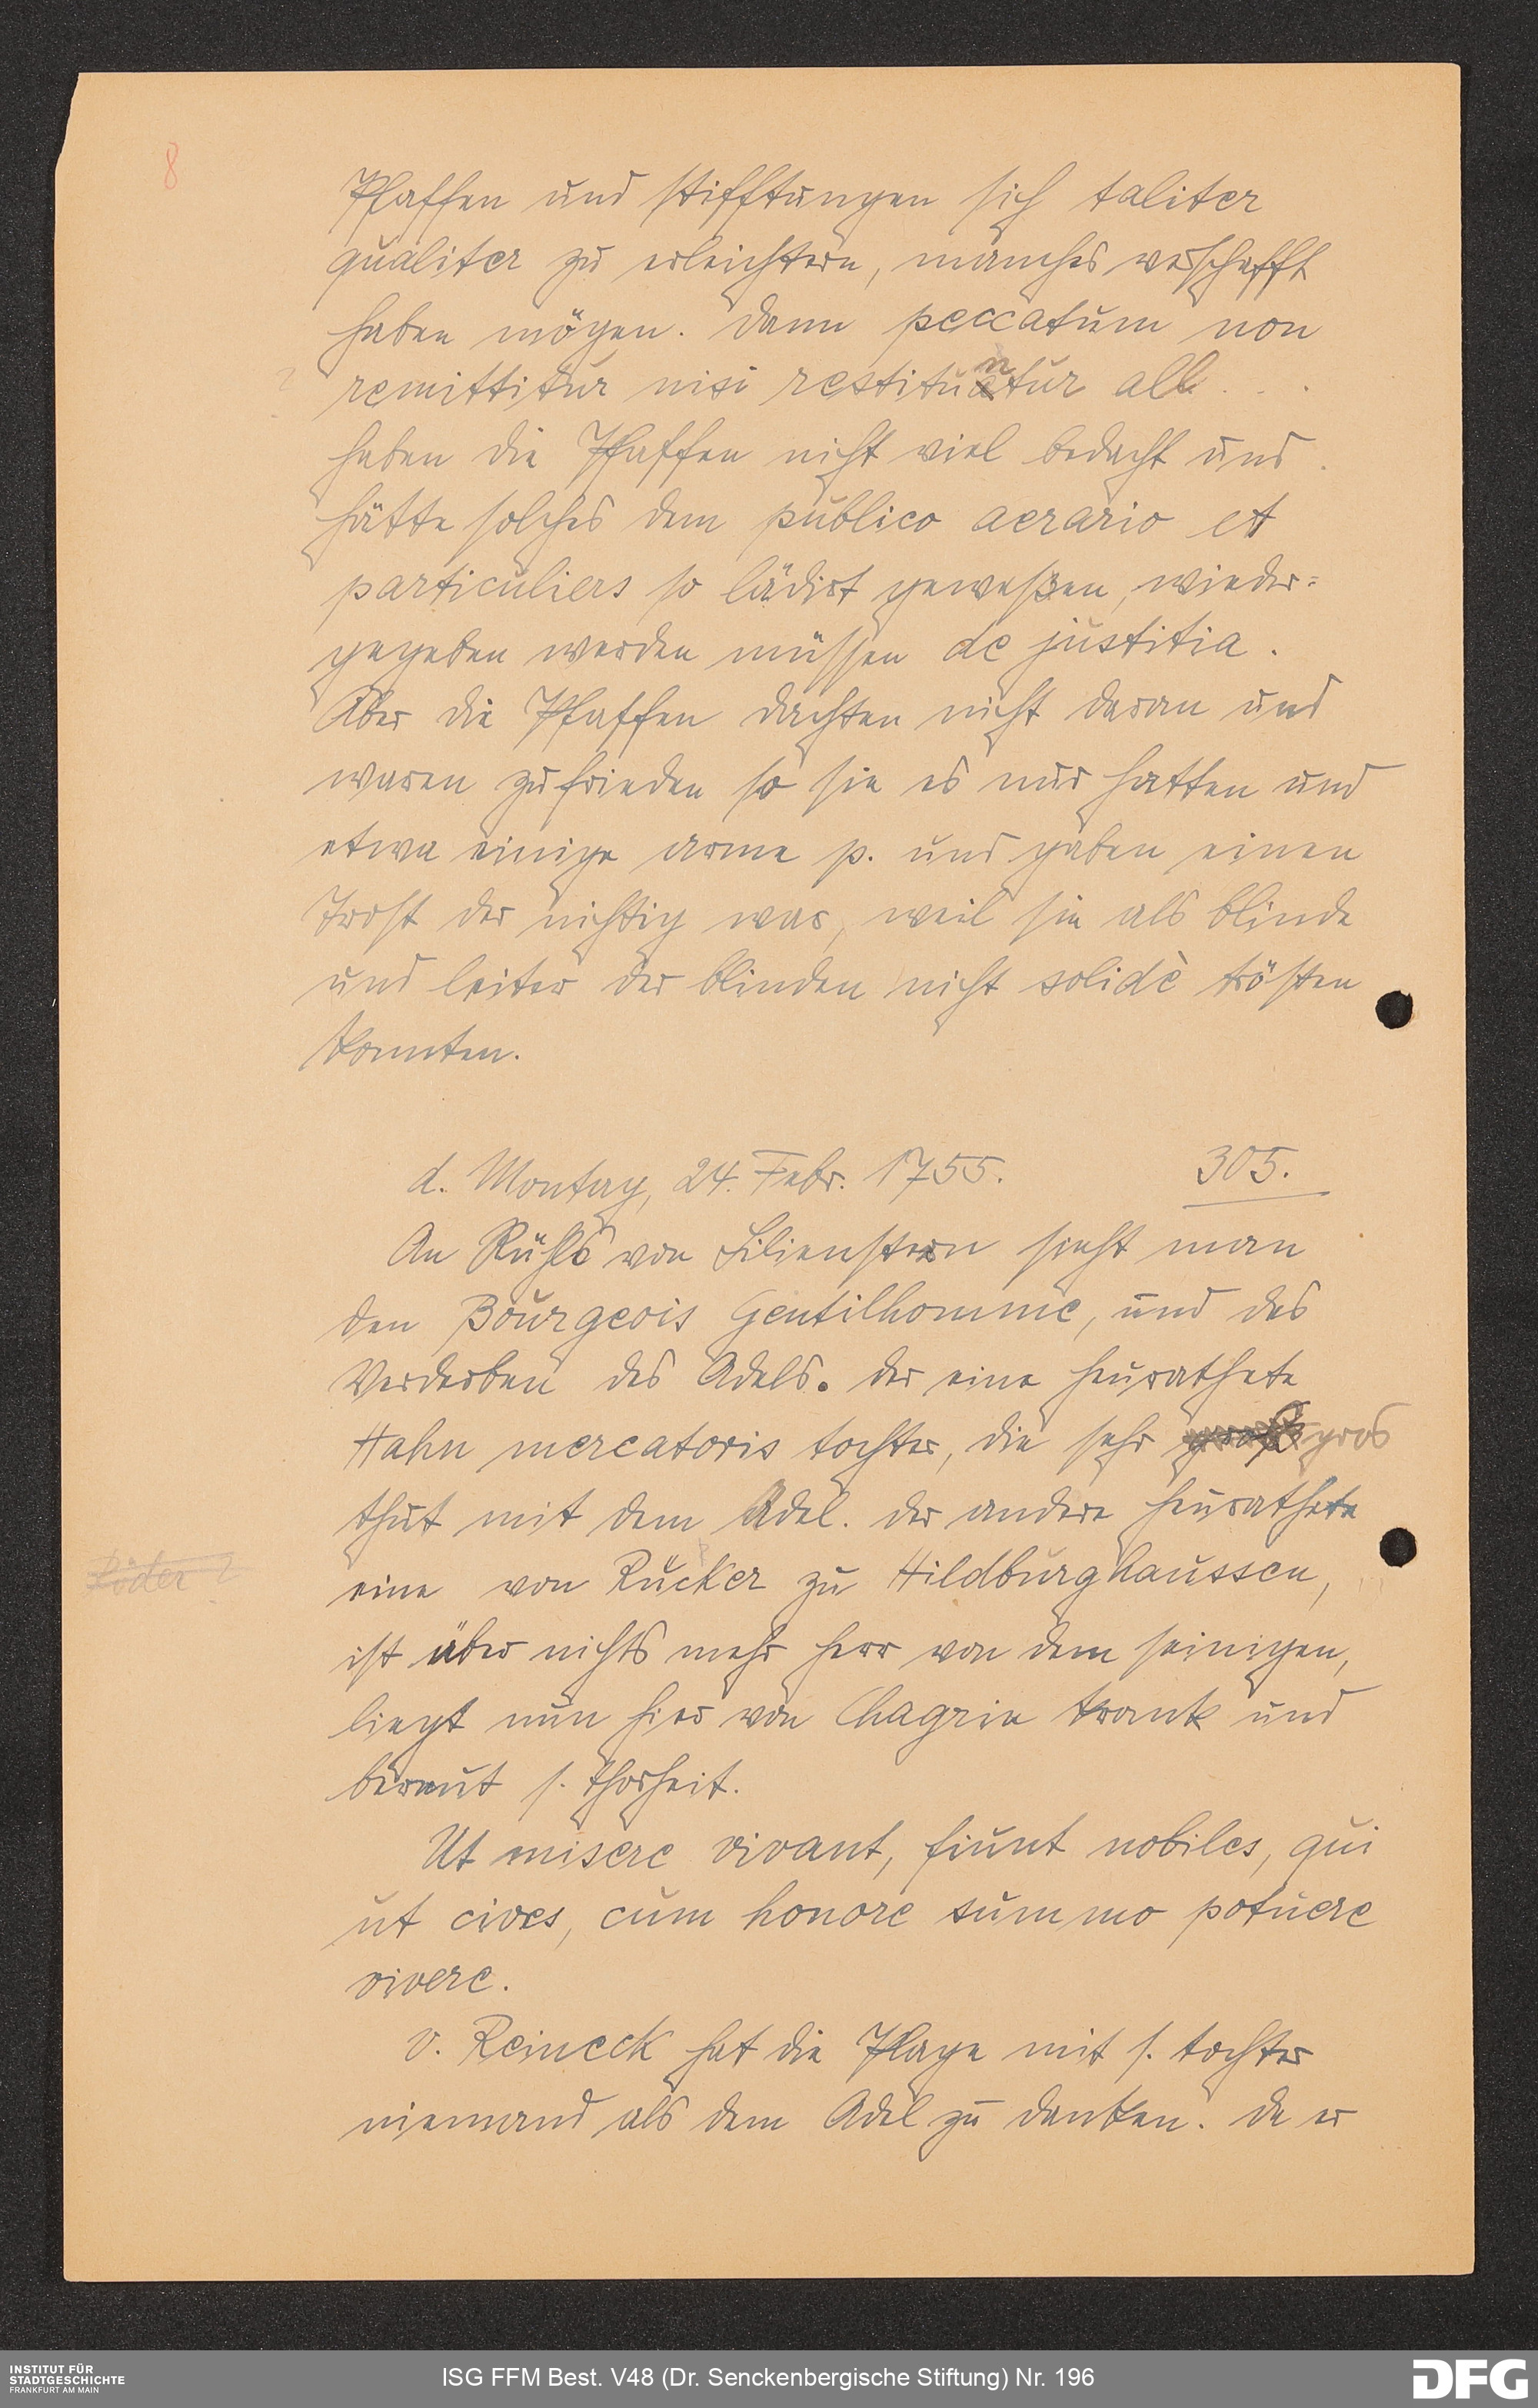 8
Pfaffen und stifftungen sich taliter
qualiter zu erleichtern, manches verschafft
haben mögen. dann peccatum non
? remittitur nisi restituntur all . . .
haben die Pfaffen nicht viel bedacht und
hätte solches dem publico aerario et
particuliers so lädirt geweßen, wieder=
gegeben werden müssen de justitia.
Aber die Pfaffen dachten nicht daran und
waren zufrieden so sie es nur hatten und
etwa einige arme p. und gaben einen
Trost der nichtig war, weil sie als blinde
und leiter der blinden nicht solidè trösten
konnten.
d. Montag, 24. Febr. 1755. 305.
An Rühls von Lilienstern sieht man
den Bourgeois Gentilhomme, und das
Verderben des Adels. der eine heurathete
Hahn mercatoris tochter, die sehr gros
thut mit dem Adel. der andere heurathete
Röder ?
eine von Rücker zu Hildburghaussen,
ist über nichts mehr herr von dem seinigen,
liegt nun hier von Chagrin krank und
bereut s. Thorheit.
Ut misere vivant, fiunt nobiles, qui
ut cives, cum honore summo potuere
vivere.
v. Reineck hat die Plage mit s. tochter
niemand als dem Adel zu danken. da er
INSTITUT FÜR
STADTGESCHICHTE
FRANKFURT AM MAIN
ISG FFM Best. V48 (Dr. Senckenbergische Stiftung) Nr. 196
DFG